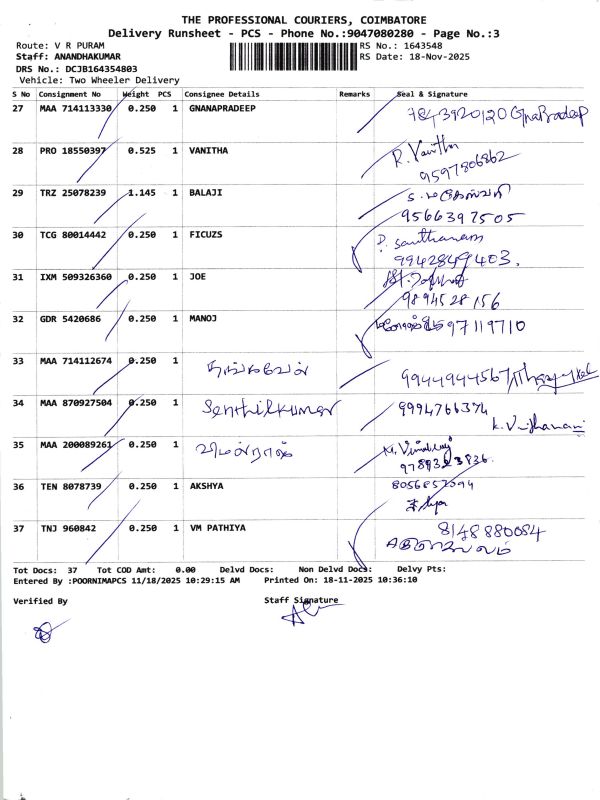 THE PROFESSIONAL COURIERS, COIMBATORE
Delivery Runsheet - PCS - Phone No.:9047080280 - Page No.:3
Route: V R PURAM
RS No.: 1643548
Staff: ANANDHAKUMAR
RS Date: 18-Nov-2025
DRS No.: DCJB164354803
Vehicle: Two Wheeler Delivery
S No Consignment No Weight PCS Consignee Details Remarks Seal & Signature
27 MAA 714113330 0.250 1 GNANAPRADEEP 7843920120 GnaPradeep
28 PRO 18550397 0.525 1 VANITHA R. Vanitha
9597806862
29 TRZ 25078239 1.145 1 BALAJI
9566397505
30 TCG 80014442 0.250 1 FICUZS P. Santhanam
9942849403.
31 IXM 509326360 0.250 1 JOE
9894528156
32 GDR 5420686 0.250 1 MANOJ 97119710
33 MAA 714112674 0.250 1 தங்கவேல் 9944944567
34 MAA 870927504 0.250 1 Senthilkumar 9994766374
35 MAA 200089261 0.250 1 விமல்ராஜ் M. Vimalraj
36 TEN 8078739 0.250 1 AKSHYA
37 TNJ 960842 0.250 1 VM PATHIYA 8148880084
Tot Docs: 37 Tot COD Amt: 0.00 Delvd Docs: Non Delvd Docs: Delvy Pts:
Entered By :POORNIMAPCS 11/18/2025 10:29:15 AM Printed On: 18-11-2025 10:36:10
Verified By Staff Signature